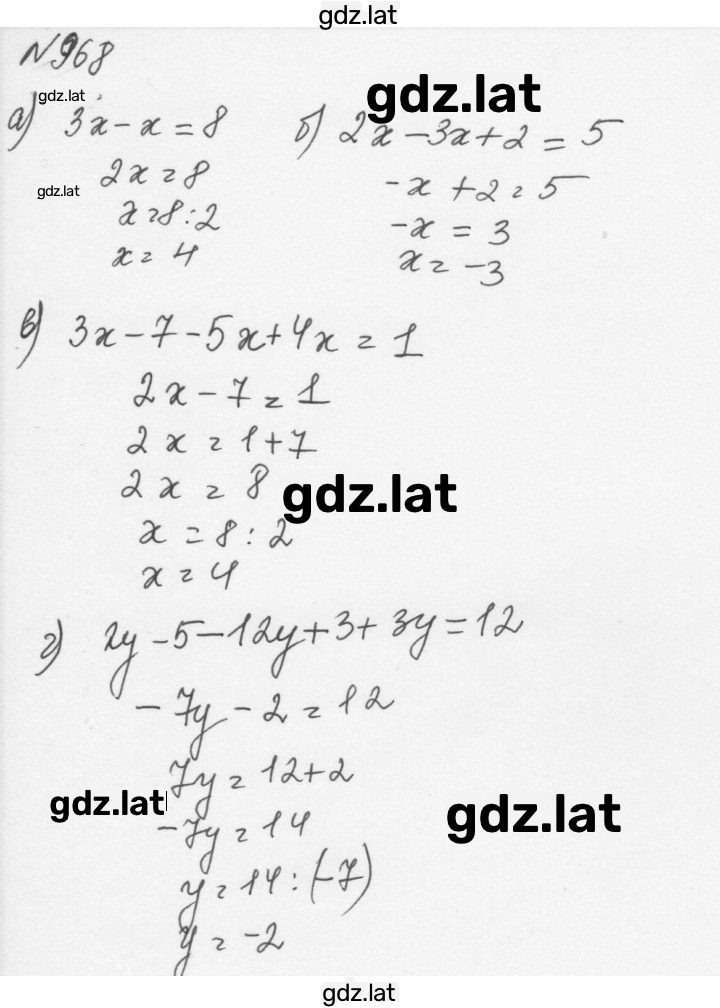 gdz.lat
№968
gdz.lat
gdz.lat
а) 3x - x = 8
2x = 8
gdz.lat
x = 8 : 2
x = 4
б) 2x - 3x + 2 = 5
-x + 2 = 5
-x = 3
x = -3
в) 3x - 7 - 5x + 4x = 1
2x - 7 = 1
2x = 1 + 7
2x = 8
gdz.lat
x = 8 : 2
x = 4
г) 2y - 5 - 12y + 3 + 3y = 12
-7y - 2 = 12
7y = 12 + 2
gdz.lat
gdz.lat
-7y = 14
y = 14 : (-7)
y = -2
gdz.lat